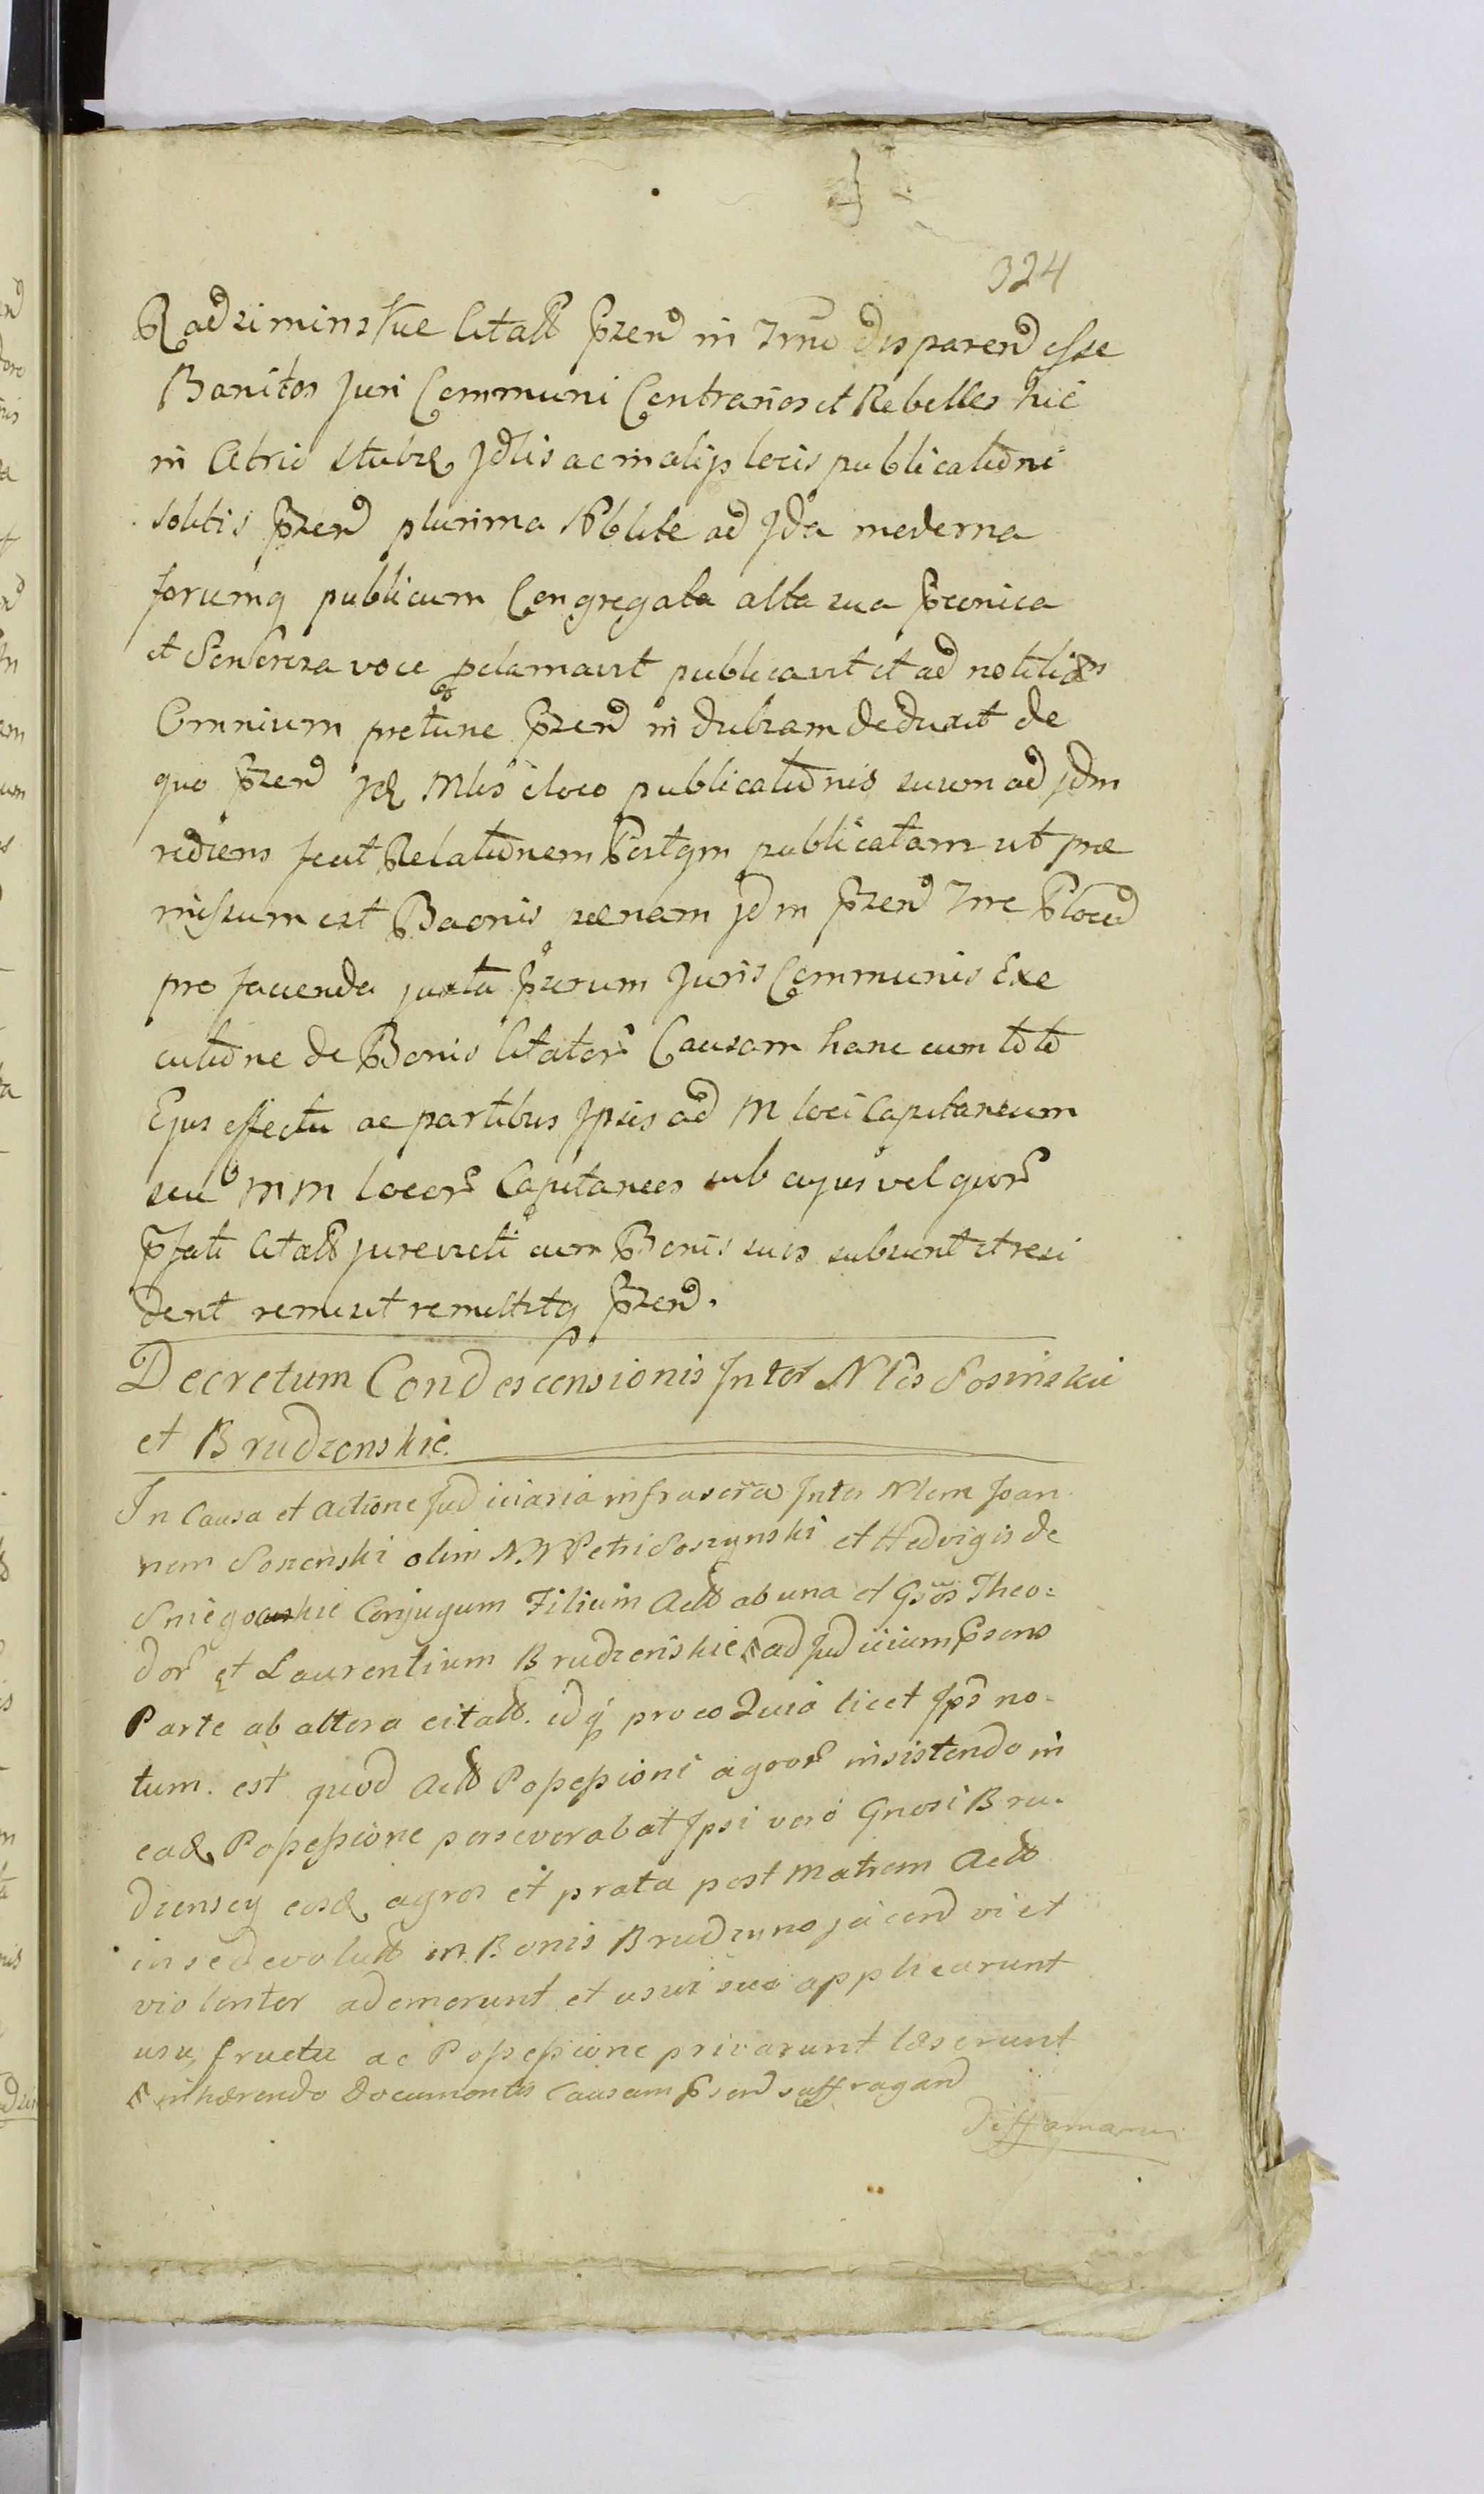 324
Radziminskie Citatt przend in Trno disparend esse
Banitos Juri Communi Contrarios et Rebelles hic
in Atrio Stubæ Jdlis ac in alijs locis publicationi
solitis przend plurima Nobilite ad Jda moderna
forumq publicum Congregata alta sua præonica
et Sonoroza voce pclamavit publicavit et ad notitiam
Omnium pretunc przend indubzam deduxit de
quo przend Jd Mlis e loco publicationis suum ad Jdm
rediens fecit Relationem Postqm publicatam ut præ
missum est Baonis pænam Jdm przend Trre Plocen
pro facienda juxta przum Juris Communis Exe
cutione de Bonis Citator Causam hanc cum toto
Ejus effectu ac partibus Ipsis ad M loci Capitaneum
seu MM locor Capitaneos sub cujus vel quor
pfati Citatt jurevicti cum Bonis suis subsunt et resi
dent remisit remittitq przend.
Decretum Condescensionis Inter Nles Sosinskii
et Brudzenskie
In Causa et Actione Judiciaria infrascra Inter Nlem Joan
nem Soszenski olim NN Petri Soszynski et Hedvigis de
Sniegockie Conjugum Filium Actt ab una et Gsos Theo:
dor et Laurentium Brudzenskie ad Judicium psens
Parte ab altera citatt. idq pro eo Quia licet Ips no-
tum. est quod Actt Possessioni agror insistendo in
ead Possessione perseverabat Ipsi vero Gnosi Bru-
dzenscy eosd agros et prata post Matrem Actt
in se devolutt in Bonis Brudzyno jacend vi et
violenter ademerunt et usui suo applicarunt
usu, fructu ac Possessione privarunt læserunt
inhærendo Documentis Causam psend suffragand